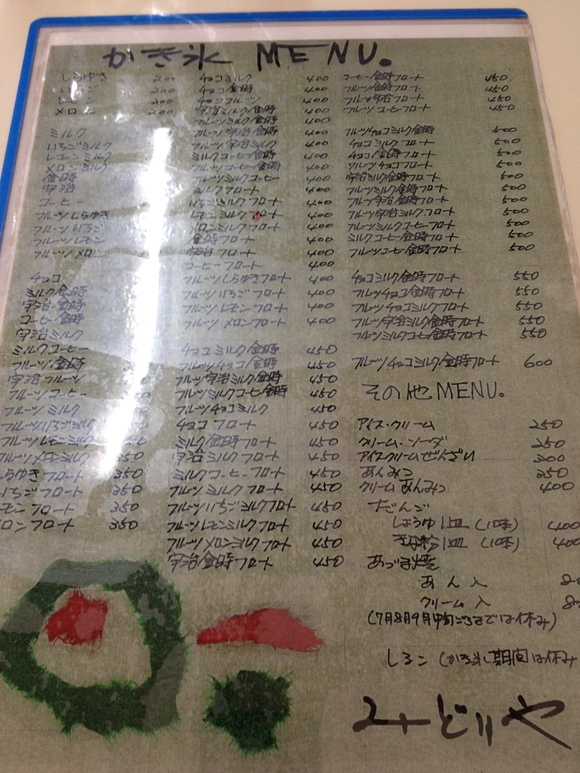 かき氷 MENU。
しらゆき 200
いちご 200
レモン 200
メロン 200
ミルク
いちごミルク
レモンミルク
メロンミルク
金時
宇治
コーヒー
フルーツしらゆき
フルーツいちご
フルーツレモン
フルーツメロン
チョコ
ミルク金時
宇治金時
コーヒー金時
宇治ミルク
ミルクコーヒー
フルーツ金時
宇治フルーツ
フルーツコーヒー
フルーツミルク
フルーツいちごミルク
フルーツレモンミルク
フルーツメロンミルク 350
しらゆきフロート 350
いちごフロート 350
レモンフロート 350
メロンフロート 350
チョコミルク 400
チョコ金時 400
チョコフルーツ 400
宇治ミルク金時 400
フルーツミルク金時 400
フルーツ宇治金時 400
フルーツ宇治ミルク 400
ミルクコーヒー金時 400
フルーツコーヒー金時 400
フルーツミルクコーヒー 400
ミルクフロート 400
いちごミルクフロート 400
レモンミルクフロート 400
メロンミルクフロート 400
金時フロート 400
宇治フロート 400
コーヒーフロート 400
フルーツしらゆきフロート 400
フルーツいちごフロート 400
フルーツレモンフロート 400
フルーツメロンフロート 400
チョコミルク金時 450
フルーツチョコ金時 450
フルーツ宇治ミルク金時 450
フルーツミルクコーヒー金時 450
フルーツチョコミルク 450
チョコフロート 450
ミルク金時フロート 450
宇治ミルクフロート 450
ミルクコーヒーフロート 450
フルーツミルクフロート 450
フルーツいちごミルクフロート 450
フルーツレモンミルクフロート 450
フルーツメロンミルクフロート 450
宇治金時フロート 450
コーヒー金時フロート 450
フルーツ金時フロート 450
フルーツ宇治フロート 450
フルーツコーヒーフロート 450
フルーツチョコミルク金時 500
チョコミルクフロート 500
チョコ金時フロート 500
フルーツチョコフロート 500
宇治ミルク金時フロート 500
フルーツミルク金時フロート 500
フルーツ宇治金時フロート 500
フルーツ宇治ミルクフロート 500
フルーツミルクコーヒーフロート 500
ミルクコーヒー金時フロート 500
フルーツコーヒー金時フロート 500
チョコミルク金時フロート 550
フルーツチョコ金時フロート 550
フルーツチョコミルクフロート 550
フルーツ宇治ミルク金時フロート 550
フルーツミルクコーヒー金時フロート 550
フルーツチョコミルク金時フロート 600
その他MENU。
アイス・クリーム 250
クリーム・ソーダ 250
アイスクリームぜんざい 300
あんみつ 350
クリームあんみつ 400
だんご
しょうゆ1皿(10本) 400
きな粉1皿(10本) 400
あづま焼
あん入
クリーム入
(7月8月9月中旬ごろまでは休み)
しるこ(かき氷期間は休み
みどりや